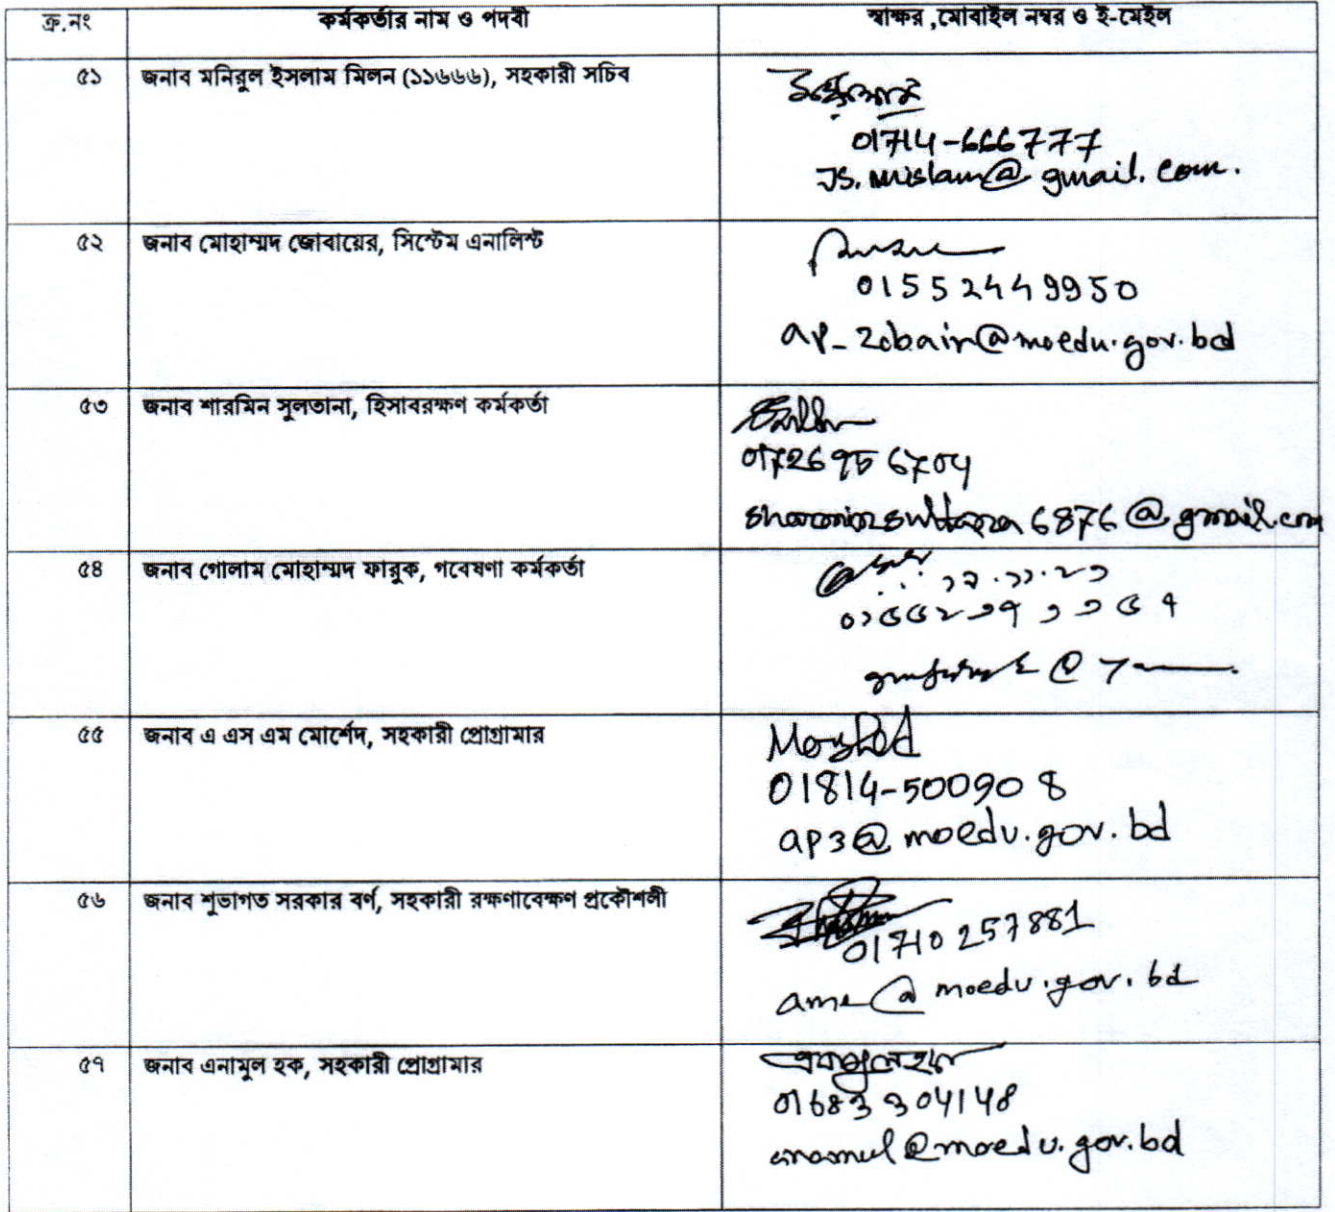 ক্র.নং কর্মকর্তার নাম ও পদবী স্বাক্ষর ,মোবাইল নম্বর ও ই-মেইল
৫১ জনাব মনিরুল ইসলাম মিলন (১১৬৬৬), সহকারী সচিব
01714-666777
JS.mislam@gmail.com.
৫২ জনাব মোহাম্মদ জোবায়ের, সিস্টেম এনালিস্ট
01552449950
ap_zobair@moedu.gov.bd
৫৩ জনাব শারমিন সুলতানা, হিসাবরক্ষণ কর্মকর্তা
01726956704
sharminsultana6876@gmail.com
৫৪ জনাব গোলাম মোহাম্মদ ফারুক, গবেষণা কর্মকর্তা
৫৫ জনাব এ এস এম মোর্শেদ, সহকারী প্রোগ্রামার
Morshed
01814-500908
ap3@moedu.gov.bd
৫৬ জনাব শুভাগত সরকার বর্ণ, সহকারী রক্ষণাবেক্ষণ প্রকৌশলী
01710257881
ame@moedu.gov.bd
৫৭ জনাব এনামুল হক, সহকারী প্রোগ্রামার
এনামুল হক
01683304148
enamul@moedu.gov.bd